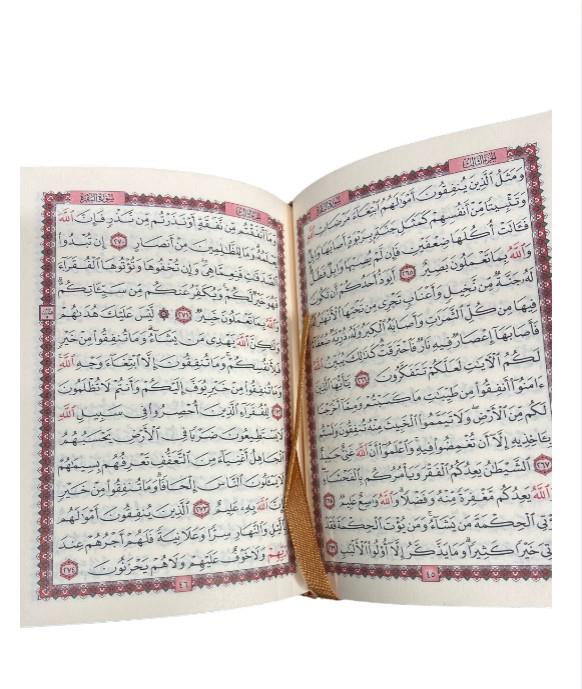 الجزء الثالث
سورة البقرة
وَمَثَلُ ٱلَّذِينَ يُنفِقُونَ أَمْوَٰلَهُمُ ٱبْتِغَآءَ مَرْضَاتِ ٱللَّهِ
وَتَثْبِيتًا مِّنْ أَنفُسِهِمْ كَمَثَلِ جَنَّةٍۭ بِرَبْوَةٍ أَصَابَهَا وَابِلٌ
فَـَٔاتَتْ أُكُلَهَا ضِعْفَيْنِ فَإِن لَّمْ يُصِبْهَا وَابِلٌ فَطَلٌّ
وَٱللَّهُ بِمَا تَعْمَلُونَ بَصِيرٌ ٢٦٥ أَيَوَدُّ أَحَدُكُمْ أَن تَكُونَ
لَهُۥ جَنَّةٌ مِّن نَّخِيلٍ وَأَعْنَابٍ تَجْرِى مِن تَحْتِهَا ٱلْأَنْهَٰرُ
فِيهَا مِن كُلِّ ٱلثَّمَرَٰتِ وَأَصَابَهُ ٱلْكِبَرُ وَلَهُۥ ذُرِّيَّةٌ ضُعَفَآءُ
فَأَصَابَهَآ إِعْصَارٌ فِيهِ نَارٌ فَٱحْتَرَقَتْ كَذَٰلِكَ يُبَيِّنُ ٱللَّهُ
لَكُمُ ٱلْـَٔايَٰتِ لَعَلَّكُمْ تَتَفَكَّرُونَ ٢٦٦ يَٰٓأَيُّهَا ٱلَّذِينَ
ءَامَنُوٓا۟ أَنفِقُوا۟ مِن طَيِّبَٰتِ مَا كَسَبْتُمْ وَمِمَّآ أَخْرَجْنَا
لَكُم مِّنَ ٱلْأَرْضِ وَلَا تَيَمَّمُوا۟ ٱلْخَبِيثَ مِنْهُ تُنفِقُونَ وَلَسْتُم
بِـَٔاخِذِيهِ إِلَّآ أَن تُغْمِضُوا۟ فِيهِ وَٱعْلَمُوٓا۟ أَنَّ ٱللَّهَ غَنِىٌّ حَمِيدٌ
٢٦٧ ٱلشَّيْطَٰنُ يَعِدُكُمُ ٱلْفَقْرَ وَيَأْمُرُكُم بِٱلْفَحْشَآءِ
وَٱللَّهُ يَعِدُكُم مَّغْفِرَةً مِّنْهُ وَفَضْلًا وَٱللَّهُ وَٰسِعٌ عَلِيمٌ
يُؤْتِى ٱلْحِكْمَةَ مَن يَشَآءُ وَمَن يُؤْتَ ٱلْحِكْمَةَ فَقَدْ
أُوتِىَ خَيْرًا كَثِيرًا وَمَا يَذَّكَّرُ إِلَّآ أُو۟لُوا۟ ٱلْأَلْبَٰبِ
٤٥
سورة البقرة
وَمَآ أَنفَقْتُم مِّن نَّفَقَةٍ أَوْ نَذَرْتُم مِّن نَّذْرٍ فَإِنَّ ٱللَّهَ
يَعْلَمُهُۥ وَمَا لِلظَّٰلِمِينَ مِنْ أَنصَارٍ ٢٧٠ إِن تُبْدُوا۟
ٱلصَّدَقَٰتِ فَنِعِمَّا هِىَ وَإِن تُخْفُوهَا وَتُؤْتُوهَا ٱلْفُقَرَآءَ
فَهُوَ خَيْرٌ لَّكُمْ وَيُكَفِّرُ عَنكُم مِّن سَيِّـَٔاتِكُمْ
وَٱللَّهُ بِمَا تَعْمَلُونَ خَبِيرٌ ٢٧١ ۞ لَّيْسَ عَلَيْكَ هُدَىٰهُمْ
وَلَٰكِنَّ ٱللَّهَ يَهْدِى مَن يَشَآءُ وَمَا تُنفِقُوا۟ مِنْ خَيْرٍ
فَلِأَنفُسِكُمْ وَمَا تُنفِقُونَ إِلَّا ٱبْتِغَآءَ وَجْهِ ٱللَّهِ
وَمَا تُنفِقُوا۟ مِنْ خَيْرٍ يُوَفَّ إِلَيْكُمْ وَأَنتُمْ لَا تُظْلَمُونَ
لِلْفُقَرَآءِ ٱلَّذِينَ أُحْصِرُوا۟ فِى سَبِيلِ ٱللَّهِ
لَا يَسْتَطِيعُونَ ضَرْبًا فِى ٱلْأَرْضِ يَحْسَبُهُمُ
ٱلْجَاهِلُ أَغْنِيَآءَ مِنَ ٱلتَّعَفُّفِ تَعْرِفُهُم بِسِيمَٰهُمْ
لَا يَسْـَٔلُونَ ٱلنَّاسَ إِلْحَافًا وَمَا تُنفِقُوا۟ مِنْ خَيْرٍ
فَإِنَّ ٱللَّهَ بِهِۦ عَلِيمٌ ٢٧٣ ٱلَّذِينَ يُنفِقُونَ أَمْوَٰلَهُم
بِٱلَّيْلِ وَٱلنَّهَارِ سِرًّا وَعَلَانِيَةً فَلَهُمْ أَجْرُهُمْ عِندَ
رَبِّهِمْ وَلَا خَوْفٌ عَلَيْهِمْ وَلَا هُمْ يَحْزَنُونَ ٢٧٤
٤٦